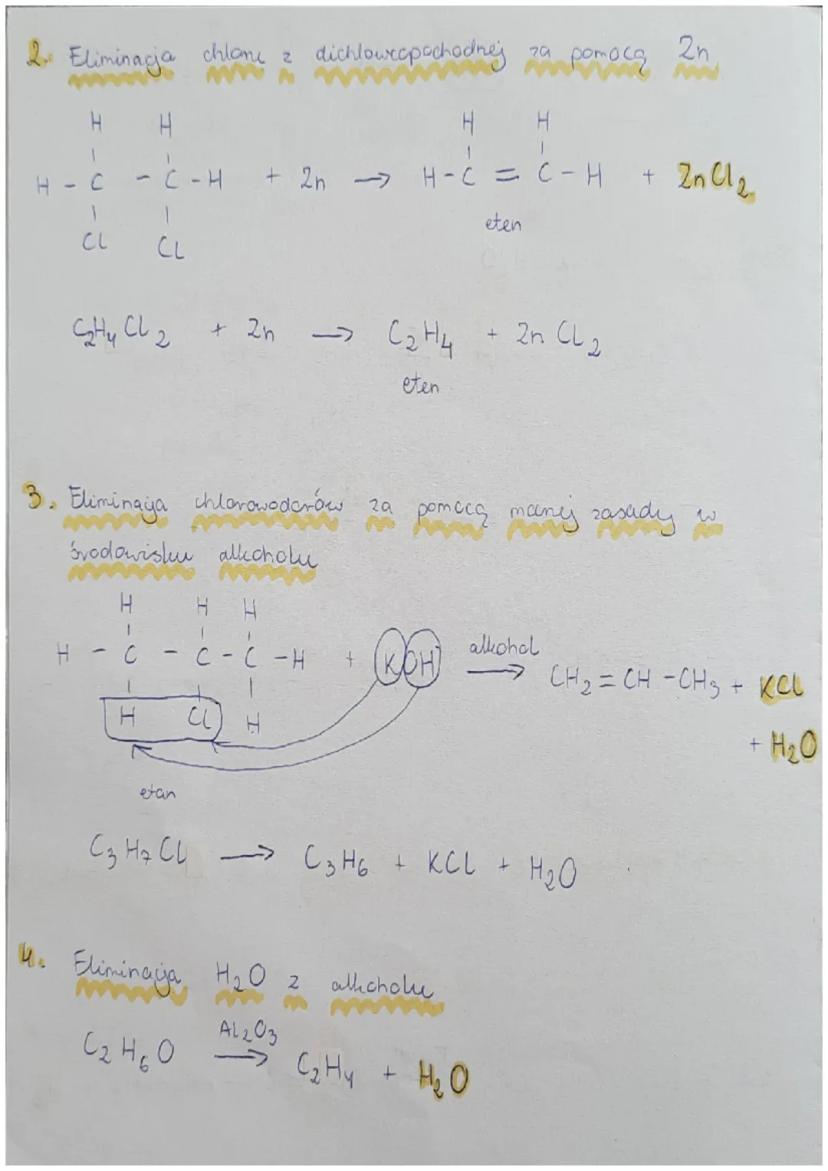 2. Eliminacja chloru z dichloropochodnej za pomocą Zn
H H
H - C - C - H + Zn → H - C = C - H + ZnCl2
H H
Cl Cl
eten
C2H4Cl2 + Zn → C2H4 + ZnCl2
eten
3. Eliminacja chlorowodorów za pomocą mocnej zasady w
środowisku alkoholu
H H H
H - C - C - C - H + KOH alkohol → CH2 = CH - CH3 + KCl
H Cl H
+ H2O
etan
C3H7Cl → C3H6 + KCl + H2O
4. Eliminacja H2O z alkoholu
Al2O3
C2H6O → C2H4 + H2O